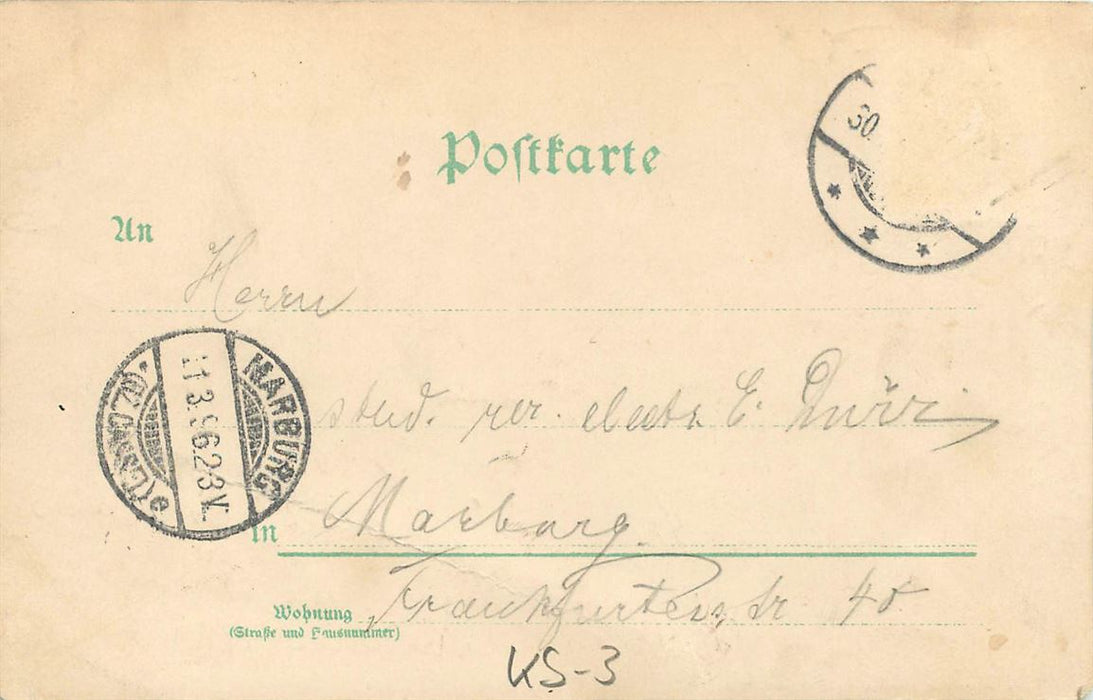 Postkarte
30.
An
Herrn
MARBURG
*(BZ. CASSEL)e
11.3.96.2-3V.
stud. rer. electr. E.
in Marburg.
Wohnung Frankfurterstr 40
(Straße und Hausnummer)
KS-3